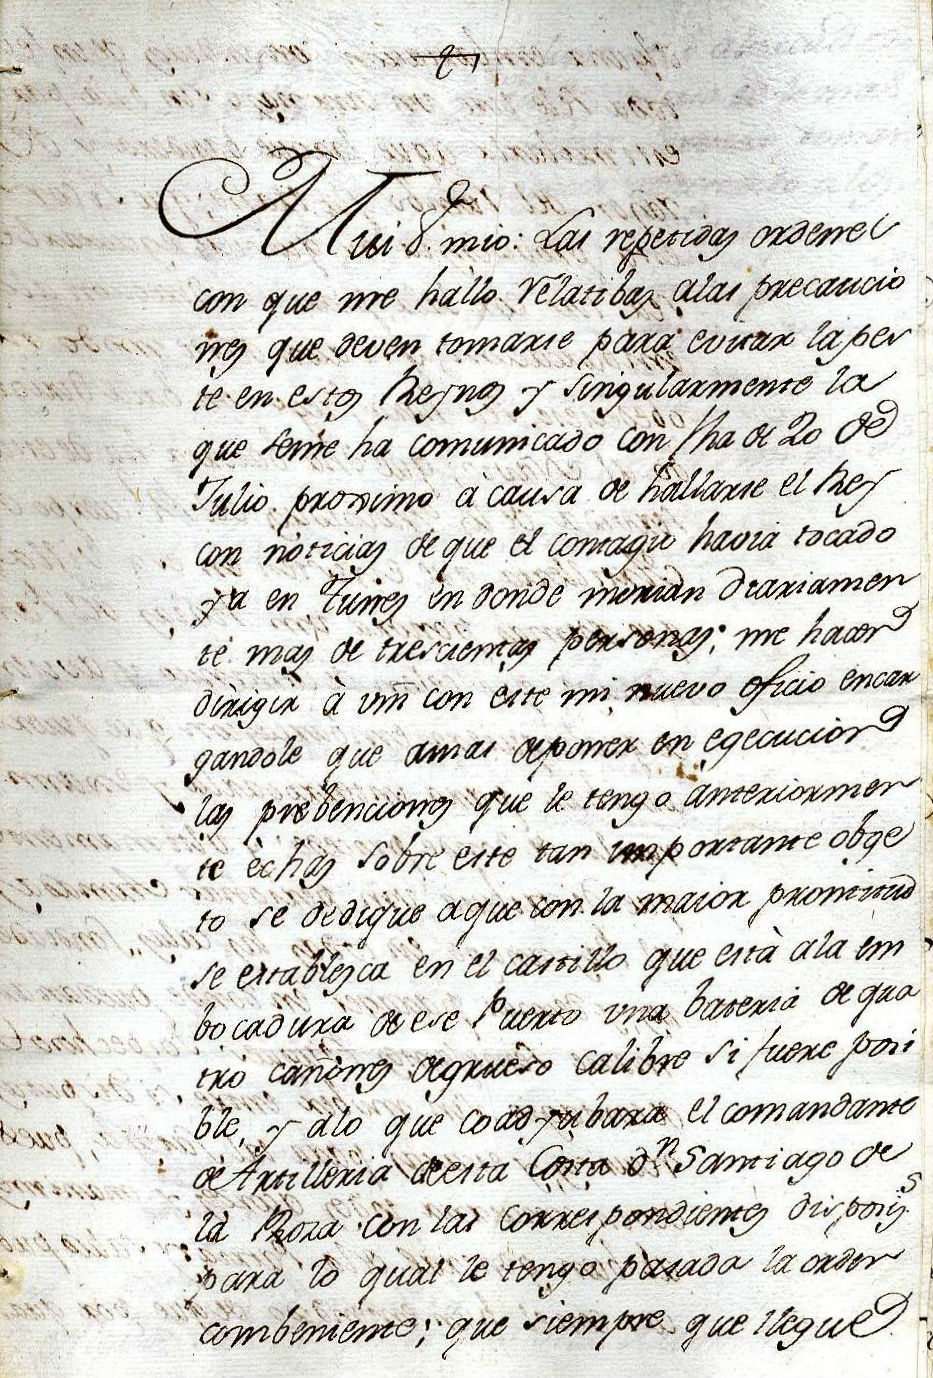 Mui S.r mio: Las repetidas ordenes
con que me hallo relatibas alas precaucio
nes que deven tomarse para evitar la pes
te en estos Reynos y singularmente la
que seme ha comunicado con fha de 20 de
Julio proximo à causa de hallarse el Rey
con noticias de que el contagio havia tocado
ya en Tunes en donde morian diariamen
te mas de trescientas personas; me hacen
dirigir à vm con este mi nuevo oficio encar
gandole que amas deponer en egecucion
las prebenciones que le tengo anteriormen
te èchas sobre este tan importante obge
to se dedique aque con la maior prontitud
se establesca en el castillo que està ala em
bocadura de ese Puerto una bateria de qua
tro cañones degrueso calibre si fuere posi
ble, y alo que coadyubara el comandante
de Artilleria deesta Costa dn Santiago de
la Rosa con las correspondientes disposis
para lo qual le tengo pasada la orden
combeniente; que siempre que llegue